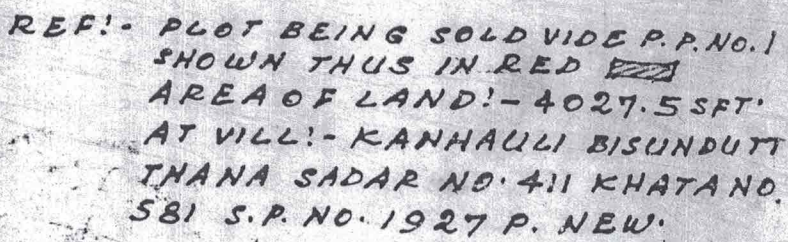 REF:- PLOT BEING SOLD VIDE P.P.NO.1
SHOWN THUS IN RED
AREA OF LAND:- 4027.5 SFT.
AT VILL:- KANHAULI BISUNDUTT
THANA SADAR NO. 411 KHATA NO.
581 S.P. NO. 1927 P. NEW.